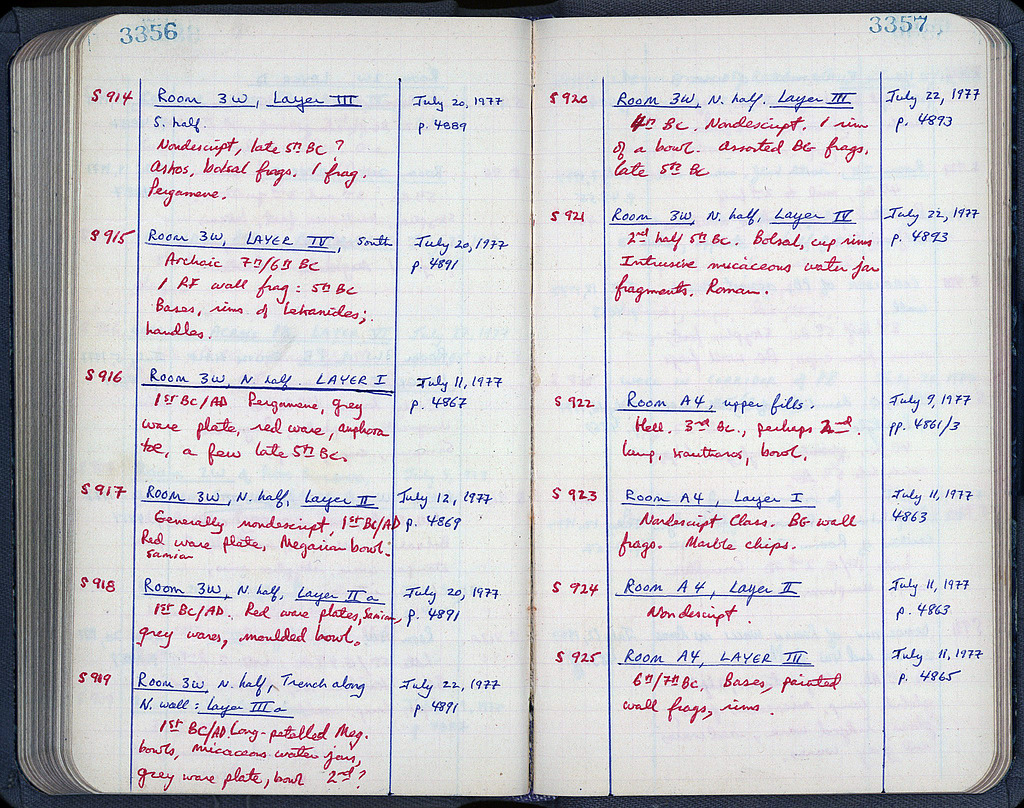 3356
S 914 Room 3W, Layer III July 20, 1977
S. half. p. 4889
Nondescript, late 5th BC ?
Askos, bolsal frags. 1 frag.
Pergamene.
S 915 Room 3W, LAYER IV, South July 20, 1977
Archaic 7th/6th BC p. 4891
1 RF wall frag : 5th BC
Bases, rims of Lekanides;
handles.
S 916 Room 3W, N. half. LAYER I July 11, 1977
1st BC/AD Pergamene, grey p. 4867
ware plate, red ware, amphora
toe, a few late 5th BC.
S 917 Room 3W, N. half, Layer II July 12, 1977
Generally nondescript, 1st BC/AD p. 4869
Red ware plate, Megarian bowl.
Samian
S 918 Room 3W, N. half, Layer II a July 20, 1977
1st BC/AD. Red ware plates, Samian, p. 4891
grey wares, moulded bowl.
S 919 Room 3W, N. half, Trench along July 22, 1977
N. wall : Layer III a p. 4891
1st BC/AD Long-petalled Meg.
bowls, micaceous water jars,
grey ware plate, bowl 2nd ?
3357
S 920 Room 3W, N. half. Layer III July 22, 1977
4th BC. Nondescript. 1 rim p. 4893
of a bowl. Assorted BG frags,
late 5th BC
S 921 Room 3W, N. half, Layer IV July 22, 1977
2nd half 5th BC. Bolsal, cup rims p. 4893
Intrusive micaceous water jar
fragments. Roman.
S 922 Room A4, upper fills. July 9, 1977
Hell. 3rd BC., perhaps 2nd. pp. 4861/3
lamp, kantharos, bowl.
S 923 Room A4, Layer I July 11, 1977
Nondescript Class. BG wall 4863
frags. Marble chips.
S 924 Room A4, Layer II July 11, 1977
Nondescript. p. 4863
S 925 Room A4, LAYER III July 11, 1977
6th/7th BC. Bases, painted p. 4865
wall frags, rims.